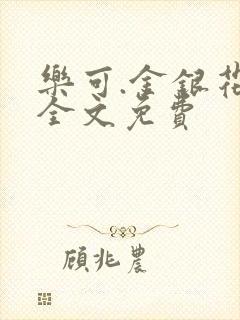 樂可.金銀花
全文免費
顧兆農